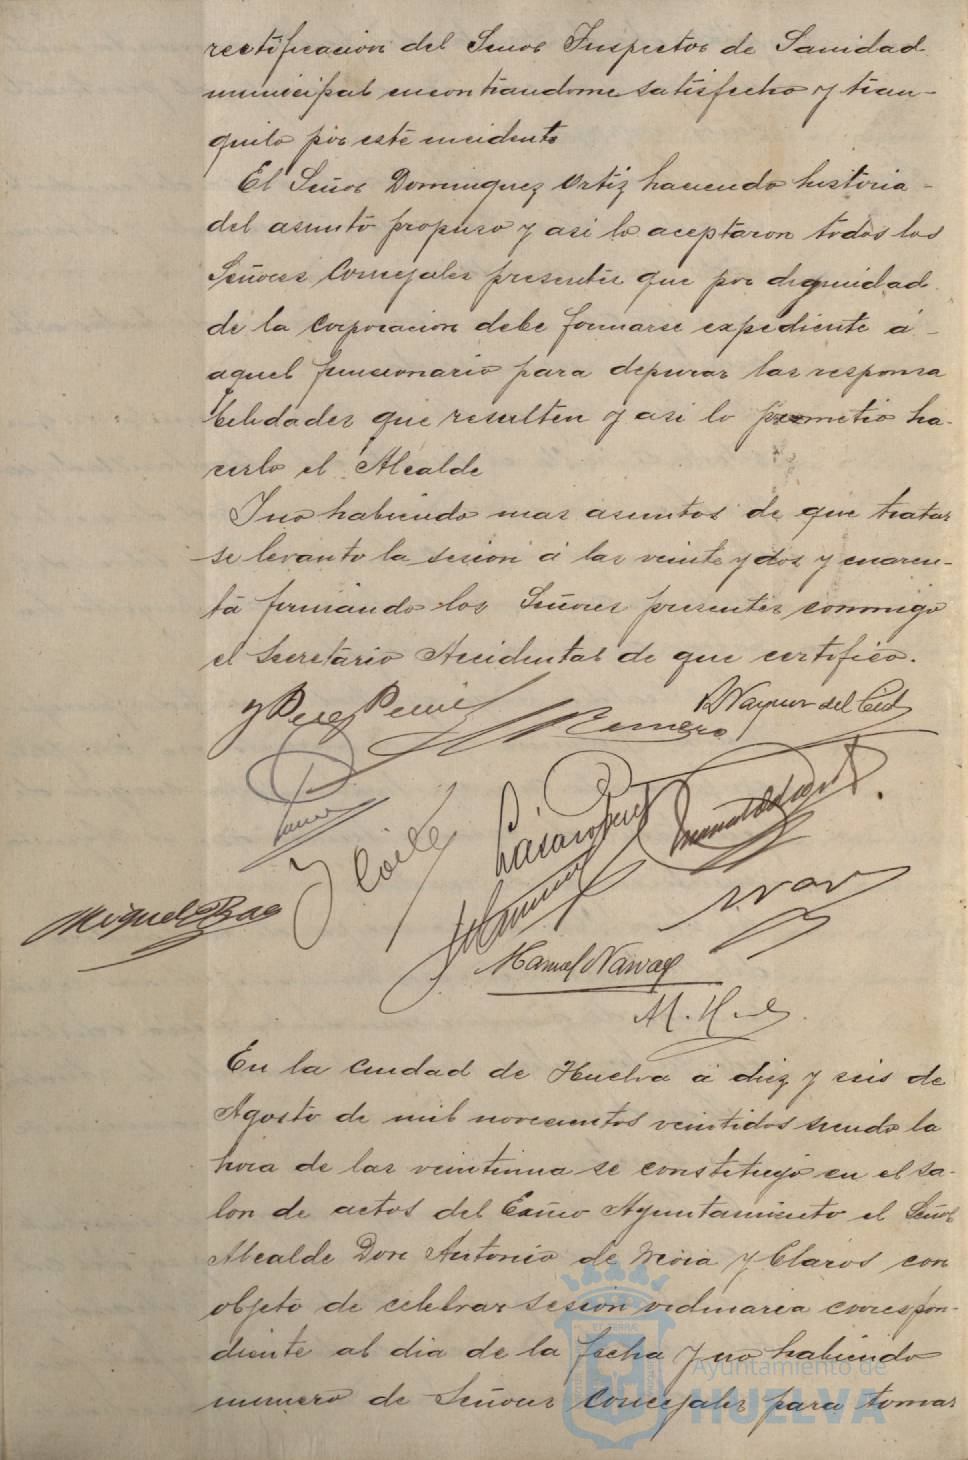 rectificacion del Señor Inspector de Sanidad
municipal encontrandome satisfecho y tran-
quilo por este incidente
El Señor Dominguez Ortiz haciendo historia
del asunto propuso y asi lo aceptaron todos los
Señores Concejales presentes que por dignidad
de la Corporacion debe formarse expediente á
aquel funcionario para depurar las responsa
bilidades que resulten y asi lo prometio ha-
cerlo el Alcalde
Y no habiendo mas asuntos de que tratar
se levanto la sesion á las veinte y dos y cuaren-
ta firmando los Señores presentes conmigo
el Secretario Accidental de que certifico.
Romero
Vazquez del Cid
J Coite
Miguel Baa
Manuel Narvaez
M. H
En la ciudad de Huelva á diez y seis de
Agosto de mil novecientos veintidos siendo la
hora de las veintiuna se constituyó en el sa-
lon de actos del Excmo Ayuntamiento el Señor
Alcalde Don Antonio de Mora y Claros con
objeto de celebrar sesion ordinaria correspon-
diente al dia de la fecha y no habiendo
numero de Señores Concejales para tomar
Ayuntamiento de
HUELVA